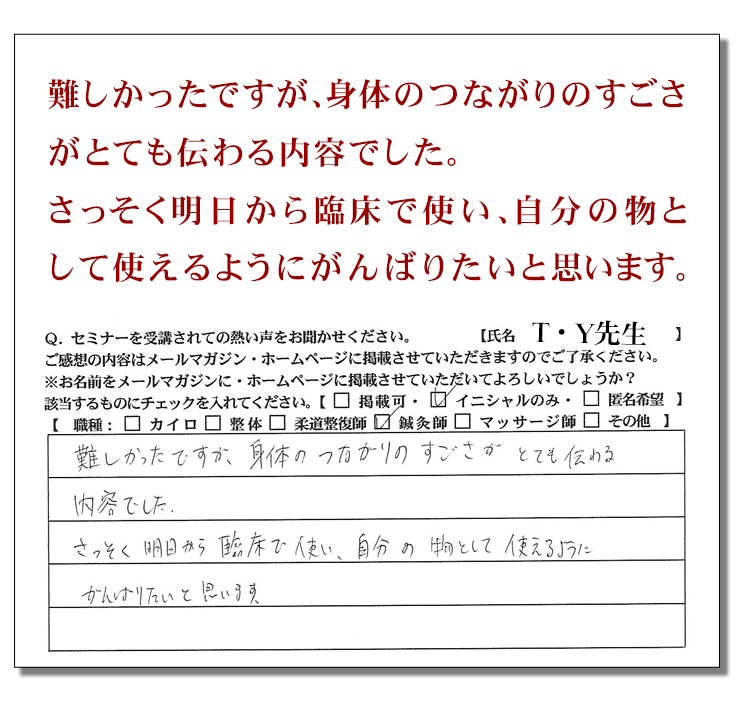 難しかったですが、身体のつながりのすごさ
がとても伝わる内容でした。
さっそく明日から臨床で使い、自分の物と
して使えるようにがんばりたいと思います。
Q. セミナーを受講されての熱い声をお聞かせください。 【氏名 T・Y先生 】
ご感想の内容はメールマガジン・ホームページに掲載させていただきますのでご了承ください。
※お名前をメールマガジンに・ホームページに掲載させていただいてよろしいでしょうか？
該当するものにチェックを入れてください。【 □ 掲載可・ ☑ イニシャルのみ・ □ 匿名希望 】
【 職種： □ カイロ □ 整体 □ 柔道整復師 ☑ 鍼灸師 □ マッサージ師 □ その他 】
難しかったですが、身体のつながりのすごさがとても伝わる
内容でした.
さっそく明日から臨床で使い、自分の物として使えるように
がんばりたいと思います